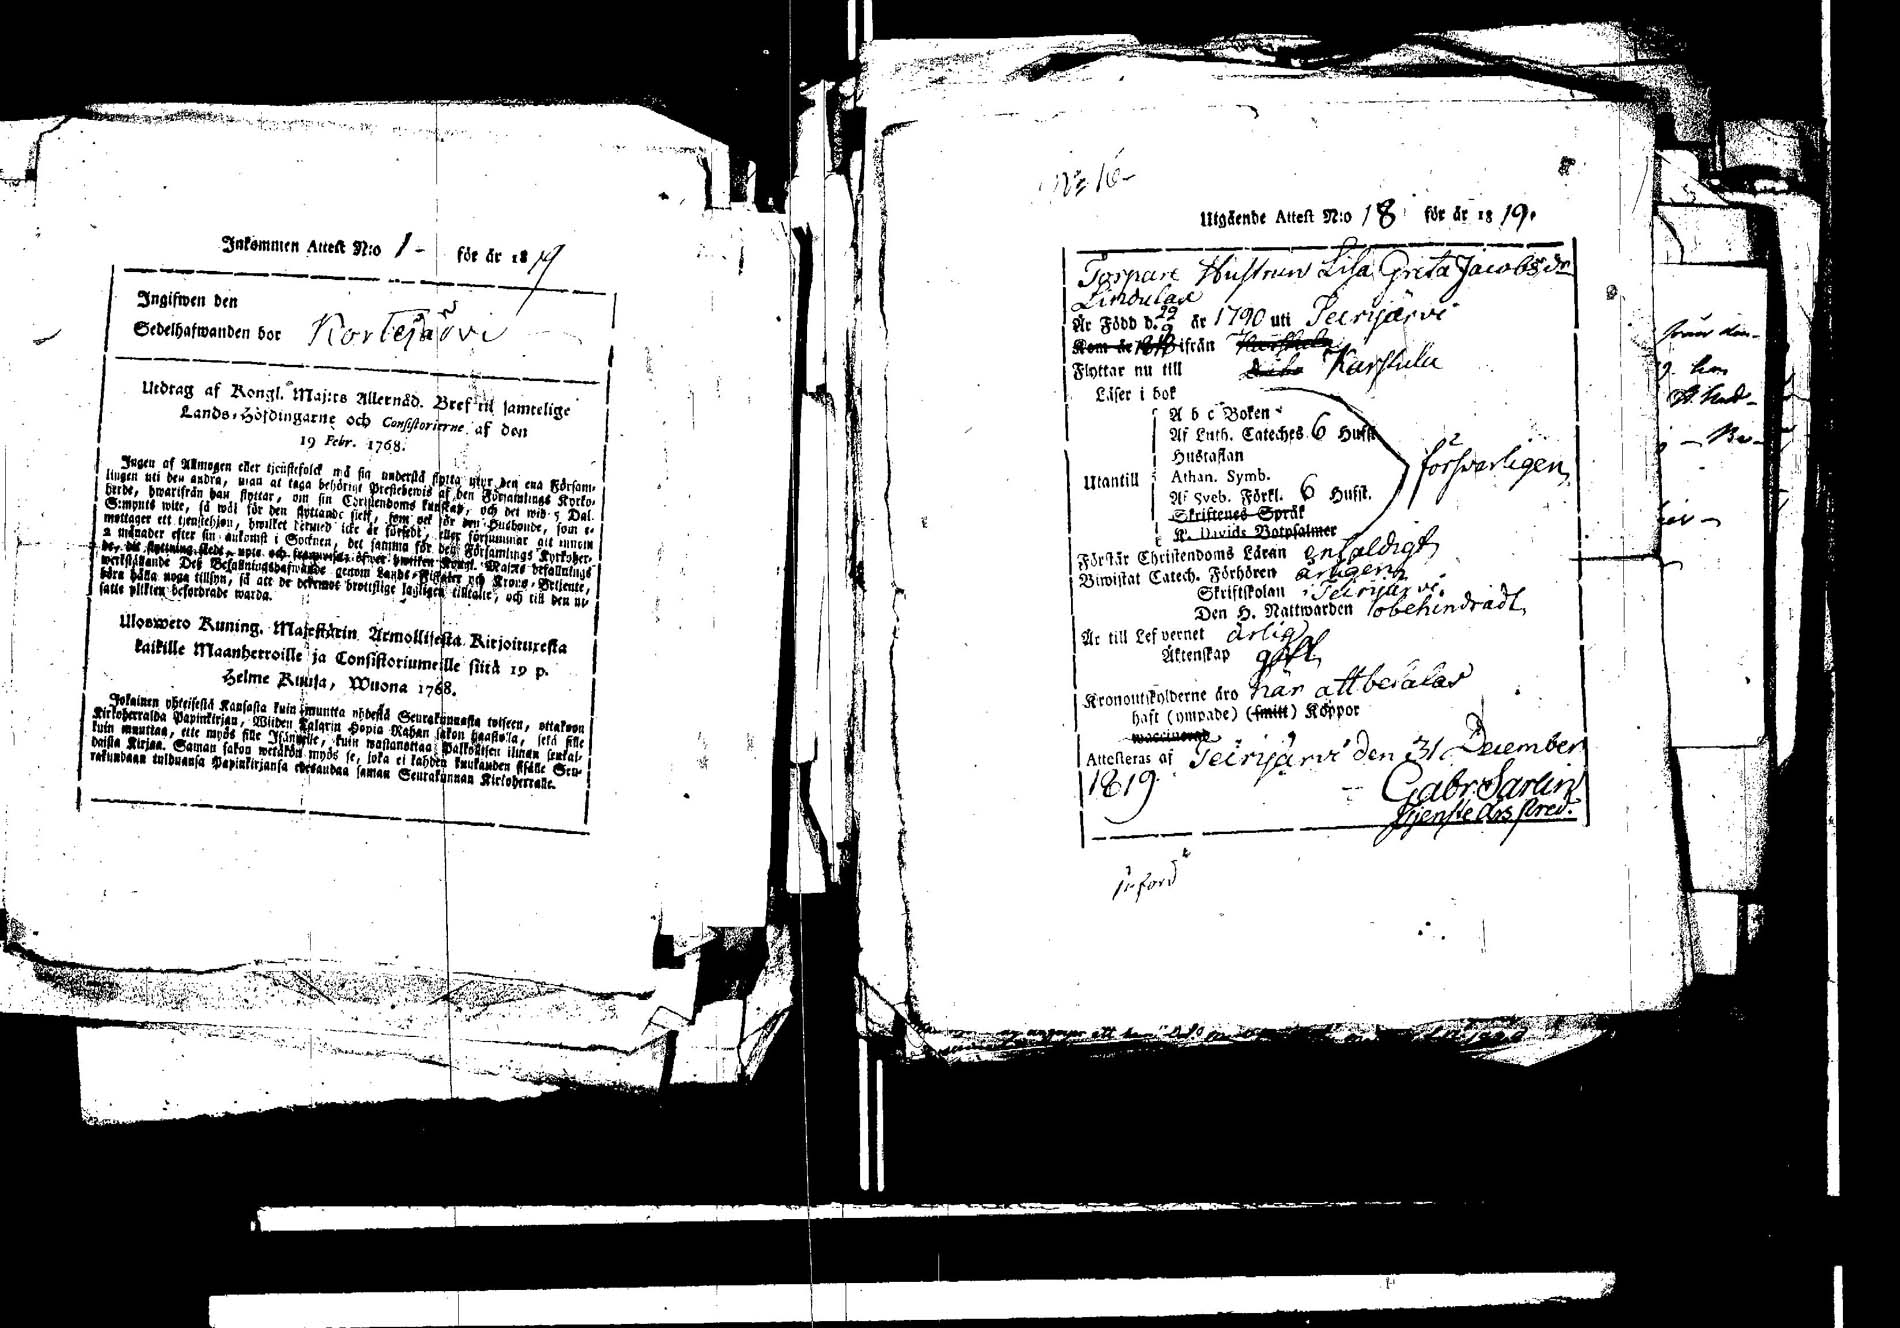 Inkommen Attest N:o 1 - för år 18 19
Ingifwen den
Sedelhafwanden bor Kortejärvi
Utdrag af Kongl. Maj:ts Allernåd. Bref til samtelige
Lands-Höfdingarne och Consistorierne af den
19 Febr. 1768.
Ingen af Allmogen eller tjenstefolck må sig understå flytta utur den ena Försam-
lingen uti den andra, utan at taga behörigt Prestebewis af den Församlings Kyrko-
herde, hwarifrån han flyttar, om sin Christendoms kunskap, och det wid 5 Dal.
S:mynts wite, så wäl för den flyttande sielf, som ock för den Husbonde, som e-
mottager ett tjenstehjon, hwilket dermed icke är försedt, eller försummar att innom
2 månader efter sin ankomst i Socknen, det samma för den Församlings Kyrkoher-
de, dit flyttning skedt, upte och framwisa; öfwer hwilken Kongl. Maj:ts befallnings
werkställande Deß Befallningshafwande genom Lands-Fiskaler och Krono-Betjente,
böra hålla noga tillsyn, så att de deremot brottslige lagligen tilltalte, och till den ut-
satte plikten befordrade warda.
Ulosweto Kuning. Majestätin Armollisesta Kirjoituxesta
kaikille Maanherroille ja Consistoriumeille siitä 19 p.
Helme Kuusa, Wuona 1768.
Jokainen yhteisestä Kansasta kuin muutta yhdestä Seurakunnasta toiseen, ottakoon
Kirkoherralda Papinkirjan, Wiiden Talarin Hopia Rahan sakon haastolla, sekä sille
kuin muuttaa, ette myös sille Isännelle, kuin wastanottaa Palkollisen ilman senkal-
daista Kirjaa. Saman sakon wetäkön myös se, joka ei kahden kuukauden sisälle Seu-
rakundaan tulduansa Papinkirjansa edesanda saman Seurakunnan Kirkoherralle.
N:o 16-
Utgående Attest N:o 18 för år 18 19.
Torpare Hustrun Lisa Greta Jacobsdr
Lindulax
Är Född d. 29/9 år 1790 uti Teerijärvi
Kom år ifrån Karstula
Flyttar nu till Karstula
Läser i bok
A b c Boken
Af Luth. Cateches 6 Hufst
Hustaflan
Utantill Athan. Symb.
Af Sveb. Förkl. 6 Hufst.
försvarligen
Skriftenes Språk
K. Davids Botpsalmer
Förstår Christendoms Läran enfaldigt
Biwistat Catech. Förhören årligen
Skriftskolan i Teerijärvi.
Den H. Nattwarden obehindradt,
Är till Lefvernet ärlig
Äktenskap gift
Kronoutskylderne äro här att betalas
haft (ympade) (smitt) Koppor
vaccinerad
Attesteras af Teerijärvi den 31 December
1819. Gabr. Sarlin
Tjenste Års Pred.
införd